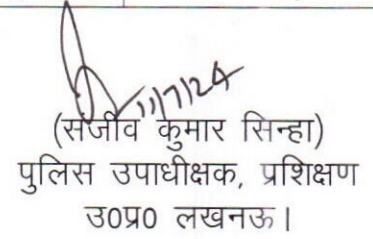 11/7/24
(संजीव कुमार सिन्हा)
पुलिस उपाधीक्षक, प्रशिक्षण
उ0प्र0 लखनऊ।